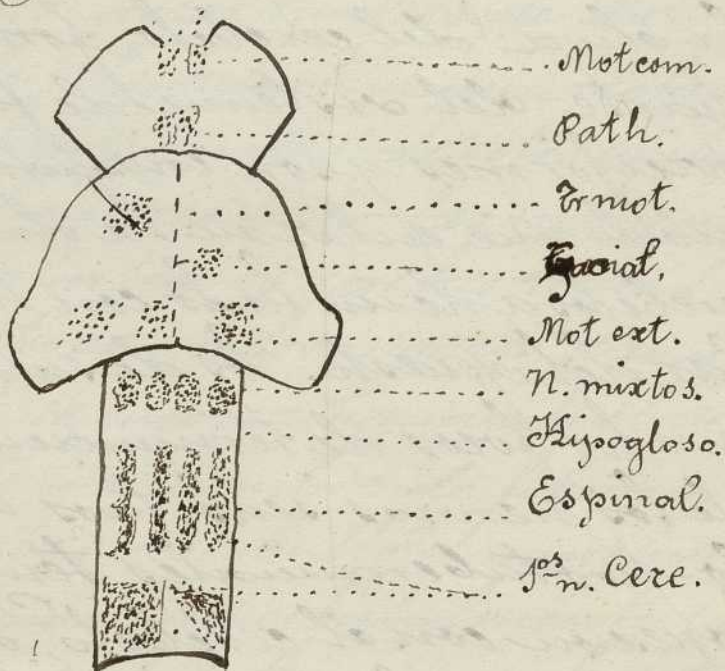 Mot com.
Path.
Tr mot.
Facial,
Mot ext.
N. mixtos.
Hipogloso.
Espinal.
1.os n. Cere.